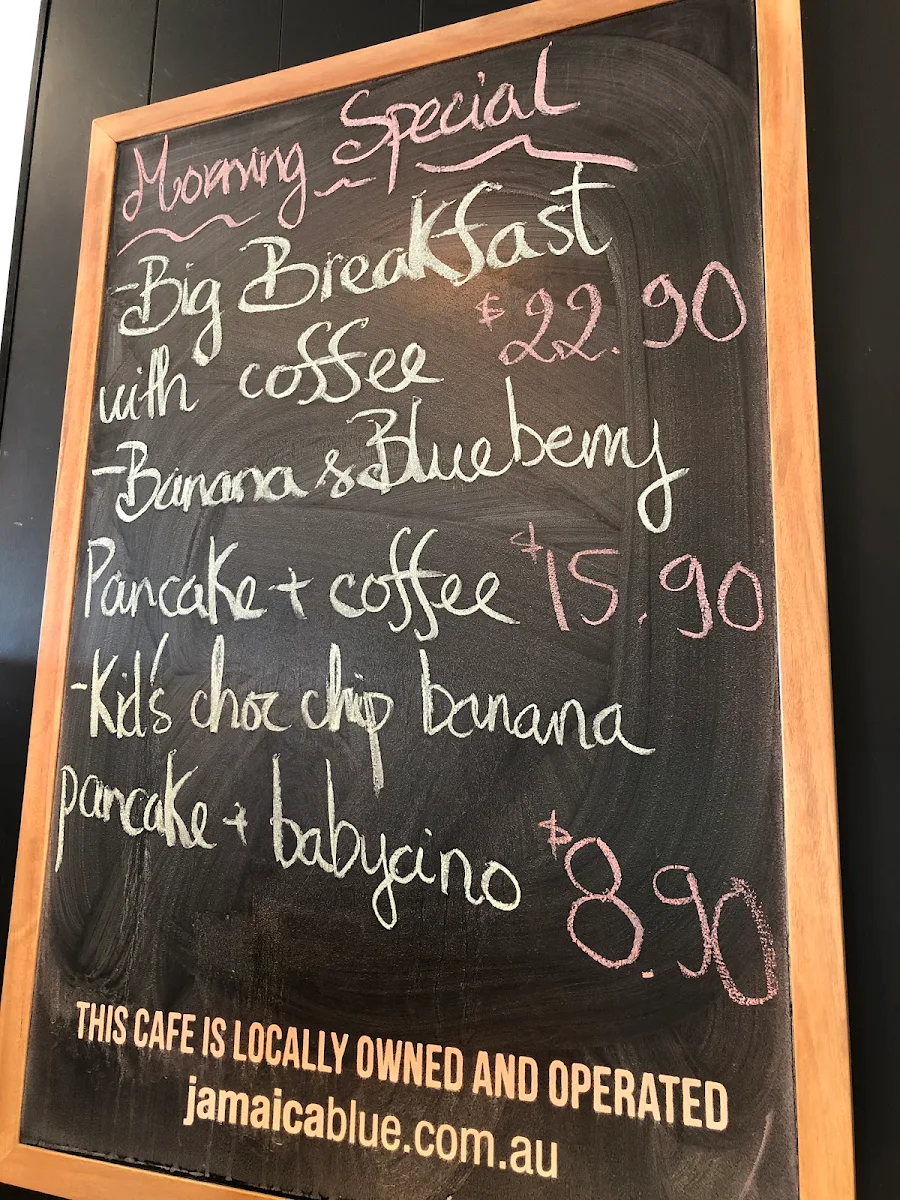 Morning Special
-Big Breakfast
with coffee $22.90
-Banana & Blueberry
Pancake + coffee $15.90
-Kid's choc chip banana
pancake + babycino $8.90
THIS CAFE IS LOCALLY OWNED AND OPERATED
jamaicablue.com.au